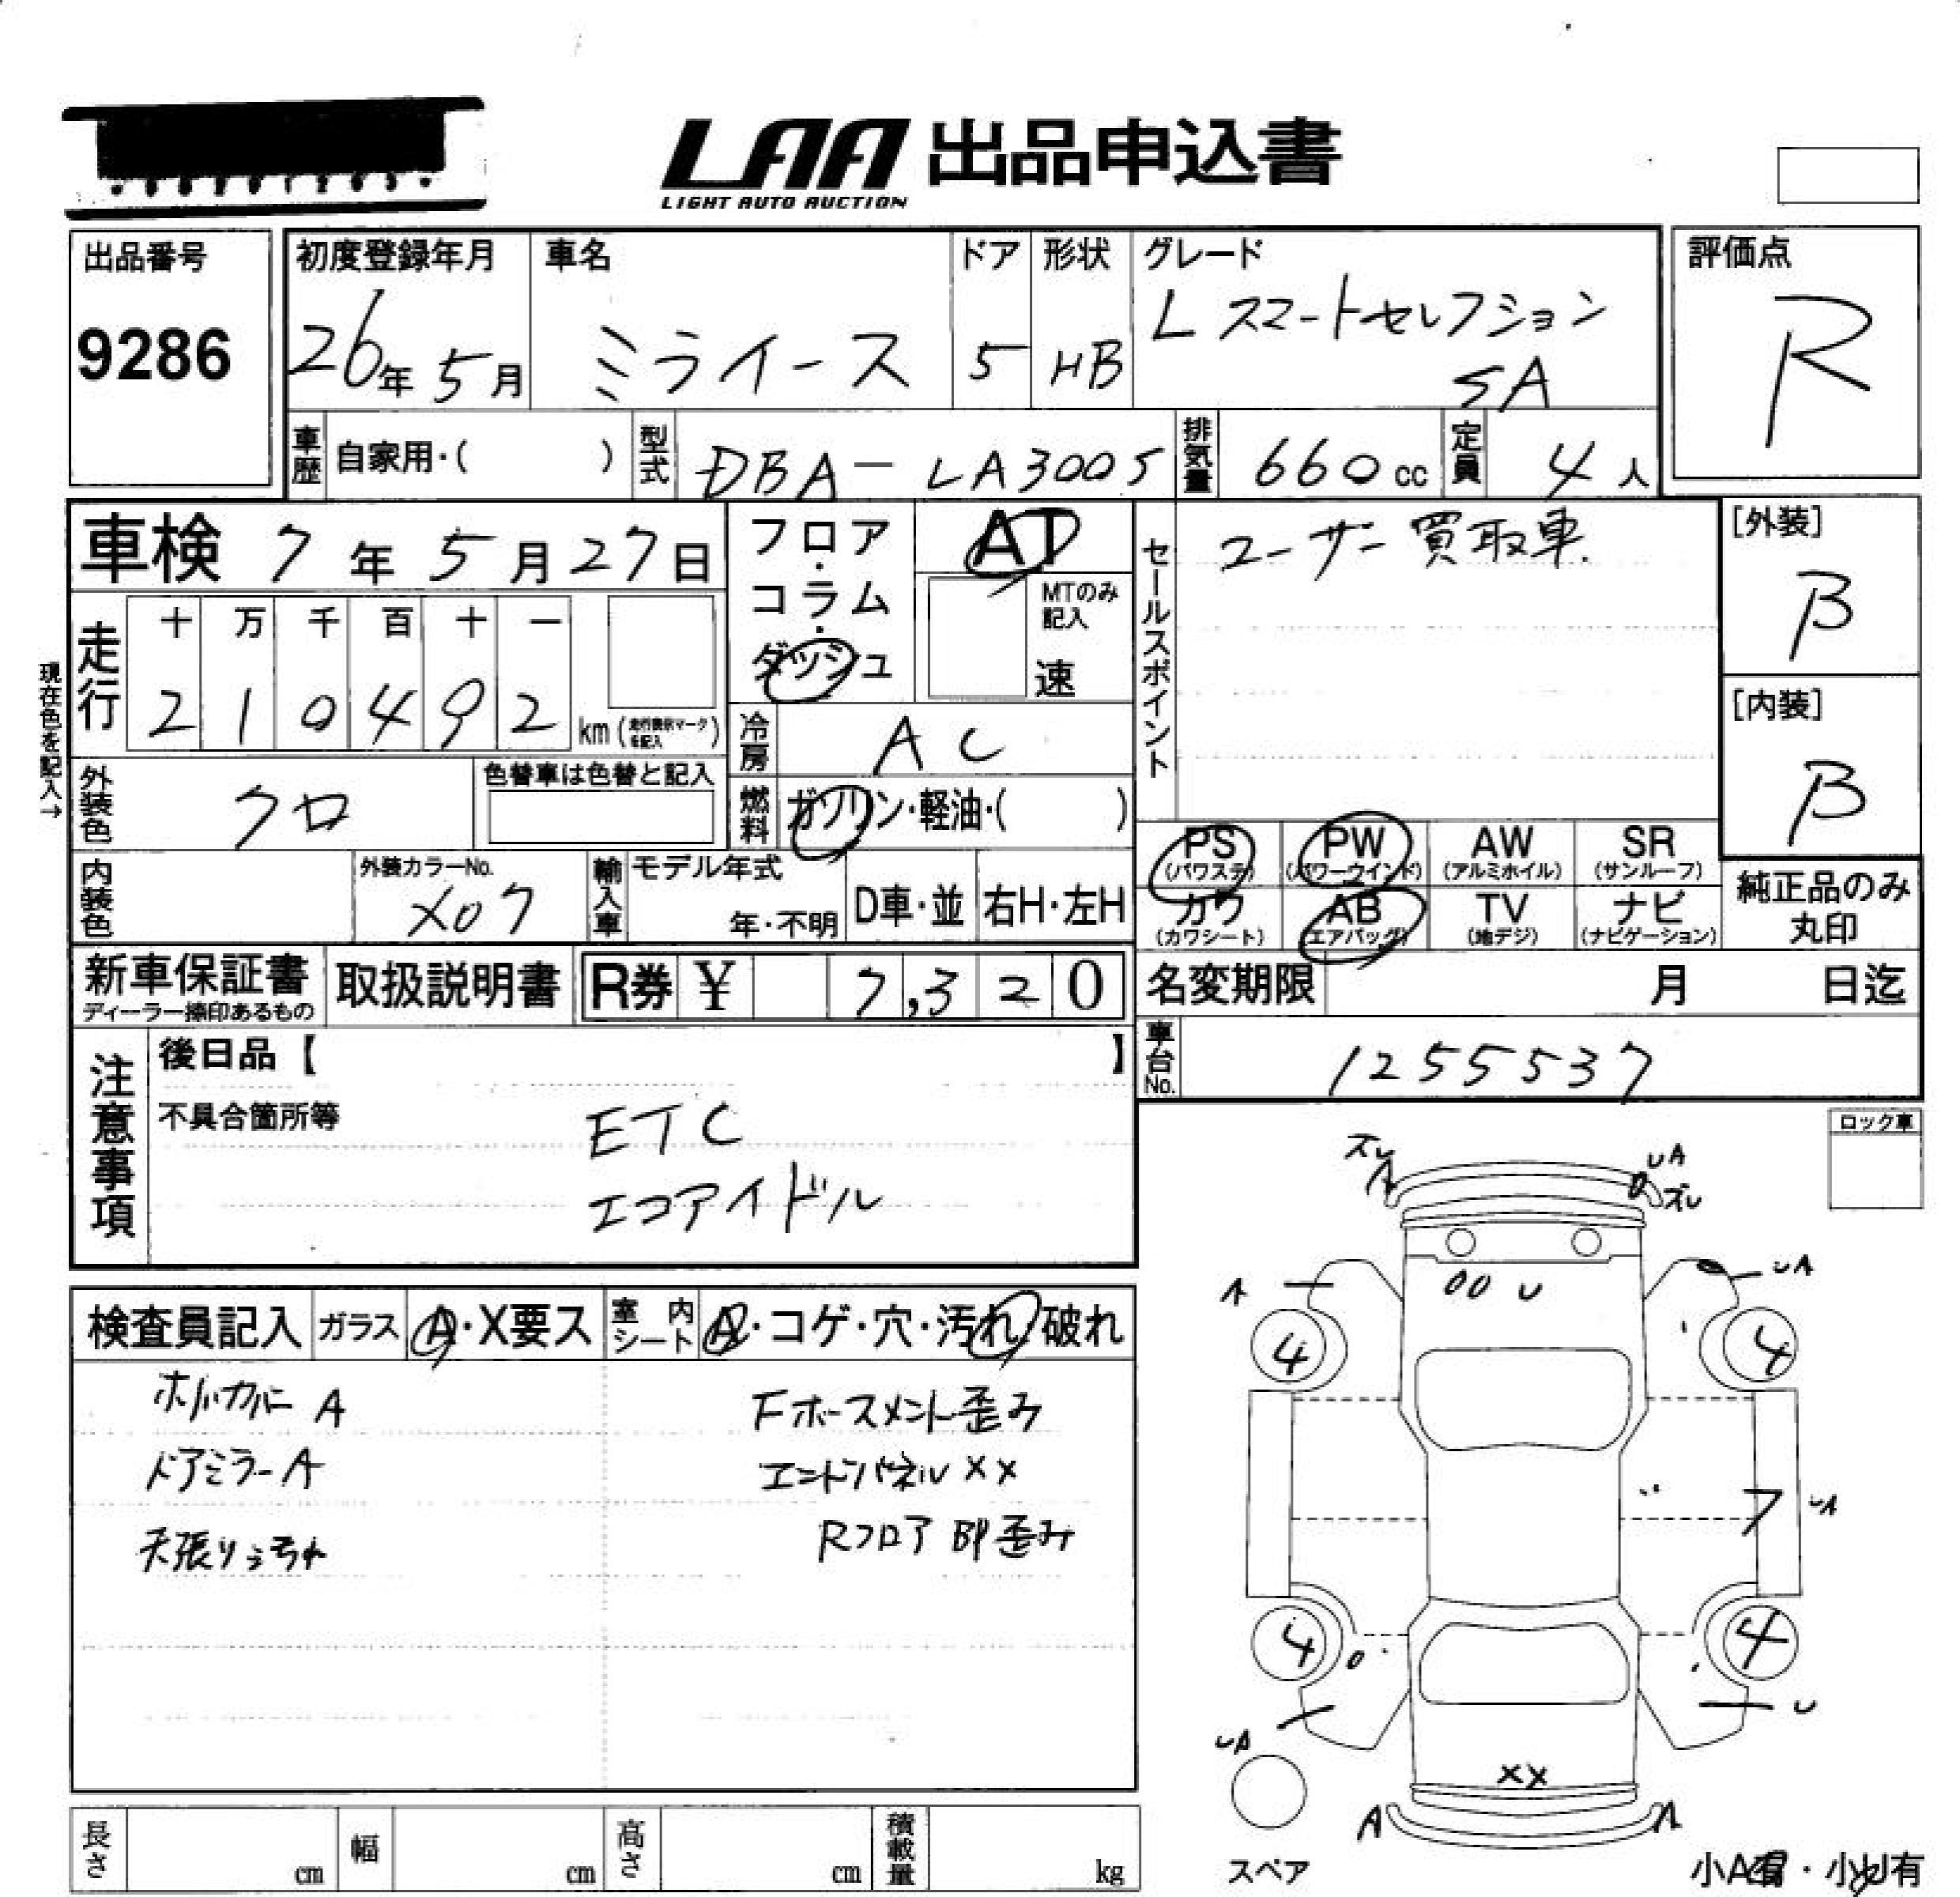 LAA 出品申込書
LIGHT AUTO AUCTION
出品番号
9286
初度登録年月
26年5月
車名
ミライース
ドア
5
形状
HB
グレード
L スマートセレクション
SA
評価点
R
車歴 自家用・( )
型式 DBA-LA300S
排気量 660cc
定員 4人
車検 7年5月27日
フロア・コラム・ダッシュ
AT
MTのみ記入
速
セールスポイント
ユーザー買取車
[外装]
B
[内装]
B
現在色を記入→
走行
十 万 千 百 十 一
2 1 0 4 9 2 km(走行表示マークを記入)
冷房 AC
外装色 クロ
色替車は色替と記入
燃料 ガソリン・軽油・( )
内装色
外装カラーNo.
X07
輸入車
モデル年式
年・不明
D車・並
右H・左H
PS (パワステ)
PW (パワーウインド)
AW (アルミホイル)
SR (サンルーフ)
カワ (カワシート)
AB (エアバッグ)
TV (地デジ)
ナビ (ナビゲーション)
純正品のみ
丸印
新車保証書
ディーラー捺印あるもの
取扱説明書
R券 ¥ 7,320
名変期限 月 日迄
車台No. 1255537
注意事項
後日品【 】
不具合箇所等
ETC
エコアイドル
ロック車
検査員記入
ガラス A・X要ス
室内シート A・コゲ・穴・汚れ・破れ
A
ドアミラーA
天張り汚れ
Fホースメント歪み
エンドパネルXX
Rフロア 歪み
ズレ
A
UA
ズレ
A
UA
U
4
4
UA
4
4
UA
U
XX
A
A
スペア
小A有・小U有
長さ cm
幅 cm
高さ cm
積載量 kg